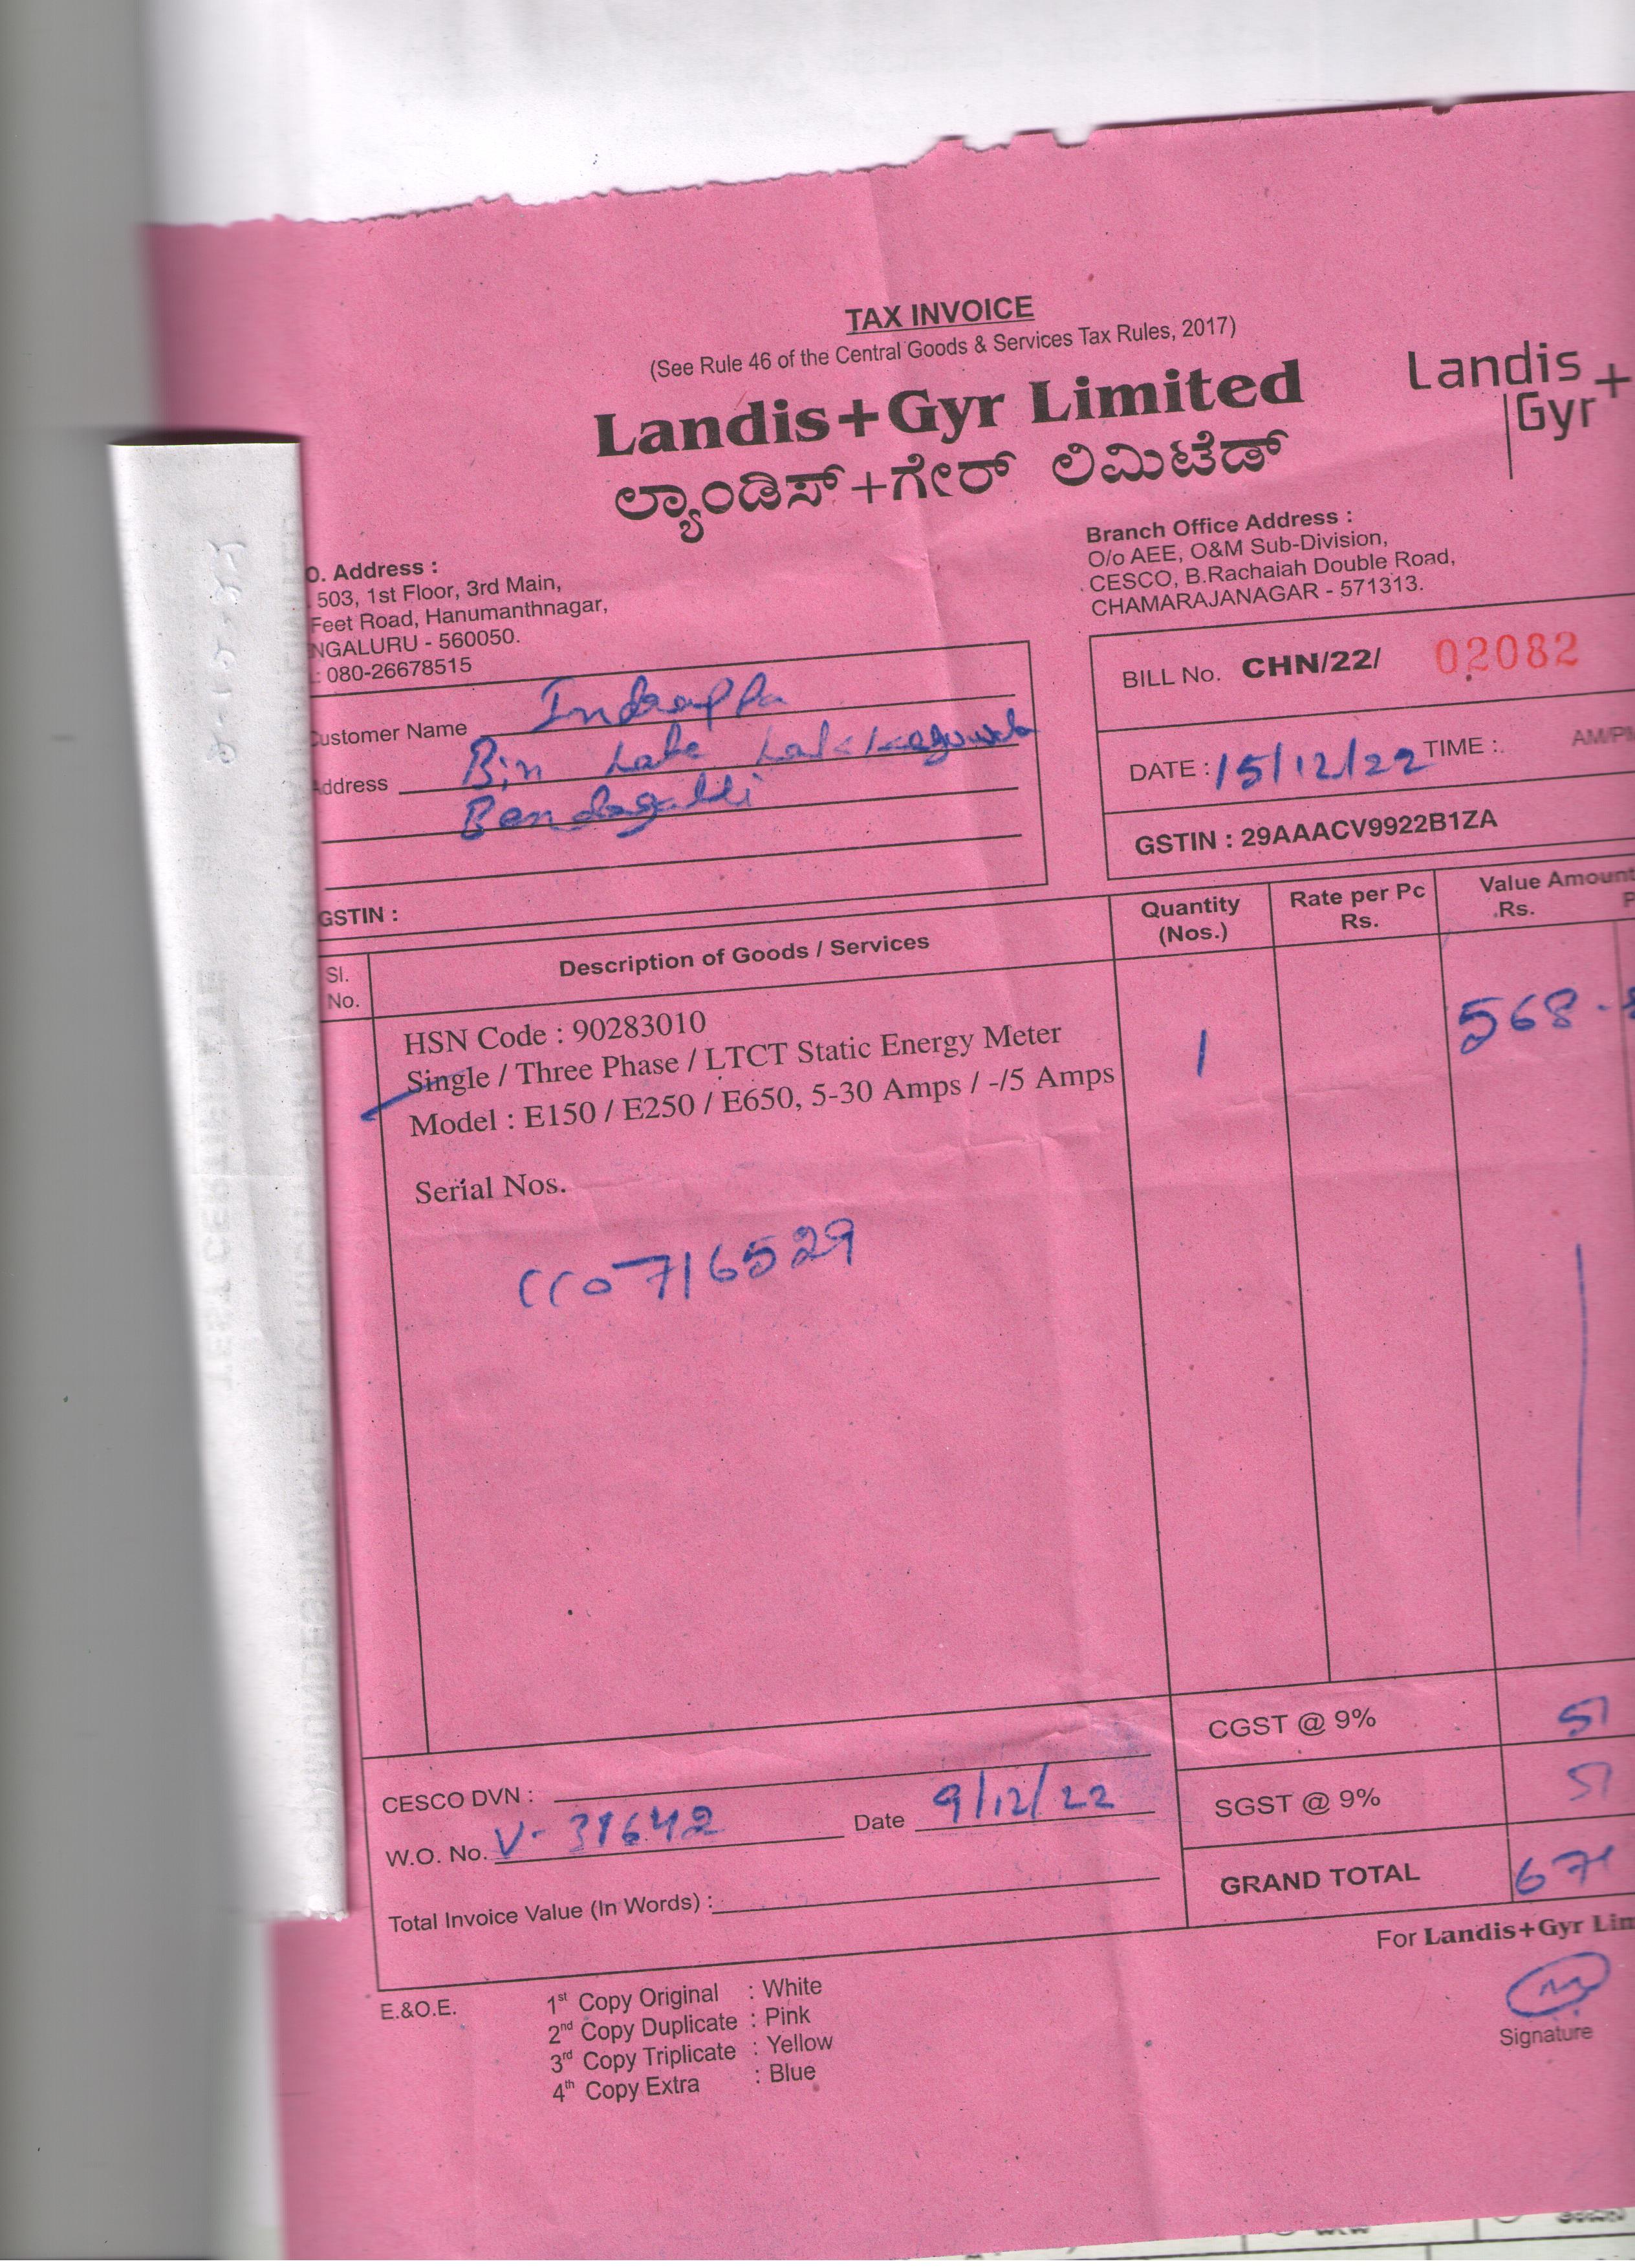 TAX INVOICE
(See Rule 46 of the Central Goods & Services Tax Rules, 2017)
Landis+Gyr Limited
ಲ್ಯಾಂಡಿಸ್+ಗೇರ್ ಲಿಮಿಟೆಡ್
Landis
Gyr +
O. Address :
503, 1st Floor, 3rd Main,
Feet Road, Hanumanthnagar,
NGALURU - 560050.
: 080-26678515
Branch Office Address :
O/o AEE, O&M Sub-Division,
CESCO, B.Rachaiah Double Road,
CHAMARAJANAGAR - 571313.
ustomer Name Indrappa
ddress Bin Late
Bendagalli
GSTIN :
BILL No. CHN/22/ 02082
DATE : 15/12/22 TIME : AM/PM
GSTIN : 29AAACV9922B1ZA
Sl. No. Description of Goods / Services Quantity (Nos.) Rate per Pc Rs. Value Amount Rs. P
HSN Code : 90283010
Single / Three Phase / LTCT Static Energy Meter 1 568 -
Model : E150 / E250 / E650, 5-30 Amps / -/5 Amps
Serial Nos.
CC0716529
CGST @ 9% 51
SGST @ 9% 51
GRAND TOTAL 671
CESCO DVN :
W.O. No. V- 31642 Date 9/12/22
Total Invoice Value (In Words) :
For Landis+Gyr Lim
Signature
E.&O.E.
1st Copy Original : White
2nd Copy Duplicate : Pink
3rd Copy Triplicate : Yellow
4th Copy Extra : Blue